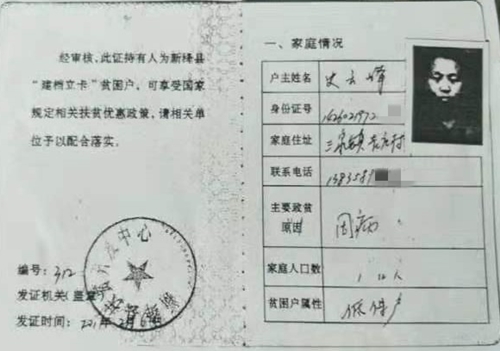 经审核，此证持有人为新绛县
“建档立卡”贫困户，可享受国家
规定相关扶贫优惠政策，请相关单
位予以配合落实。
编号：312
发证机关（盖章）
发证时间：201
中心
一、家庭情况
户主姓名 史
身份证号 1426021972
家庭住址 三泉镇
联系电话
主要致贫
原因 因病
家庭人口数 1 口人
贫困户属性 低保户